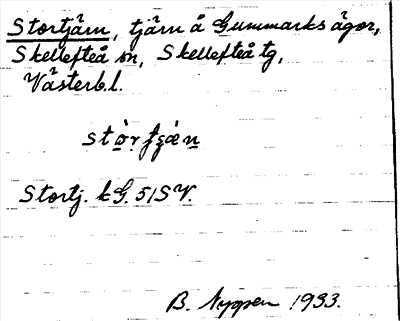 Stortjärn, tjärn å Gummarks ägor,
Skellefteå sn, Skellefteå tg,
Västerb. l.
Stortj. kG. 51SV.
B. Nygren 1933.